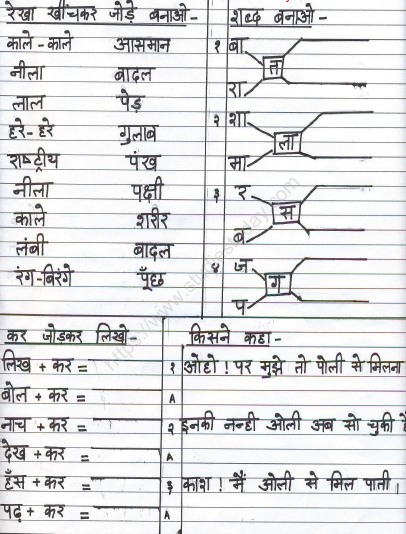 रेखा खींचकर जोड़े बनाओ -
काले - काले आसमान
नीला बादल
लाल पेड़
हरे - हरे गुलाब
राष्ट्रीय पंख
नीला पक्षी
काले शरीर
लंबी बादल
रंग-बिरंगे पूँछ
शब्द बनाओ -
१ बा
ता
रा
२ शा
ला
मा
३ र
स
ब
४ ज
ग
प
कर जोड़कर लिखो -
लिख + कर =
बोल + कर =
नाच + कर =
देख + कर =
हँस + कर =
पढ़ + कर =
किसने कहा -
१ ओहो ! पर मुझे तो पोली से मिलना
A
२ इनकी नन्ही ओली अब सो चुकी है
A
३ काश ! मैं ओली से मिल पाती ।
A